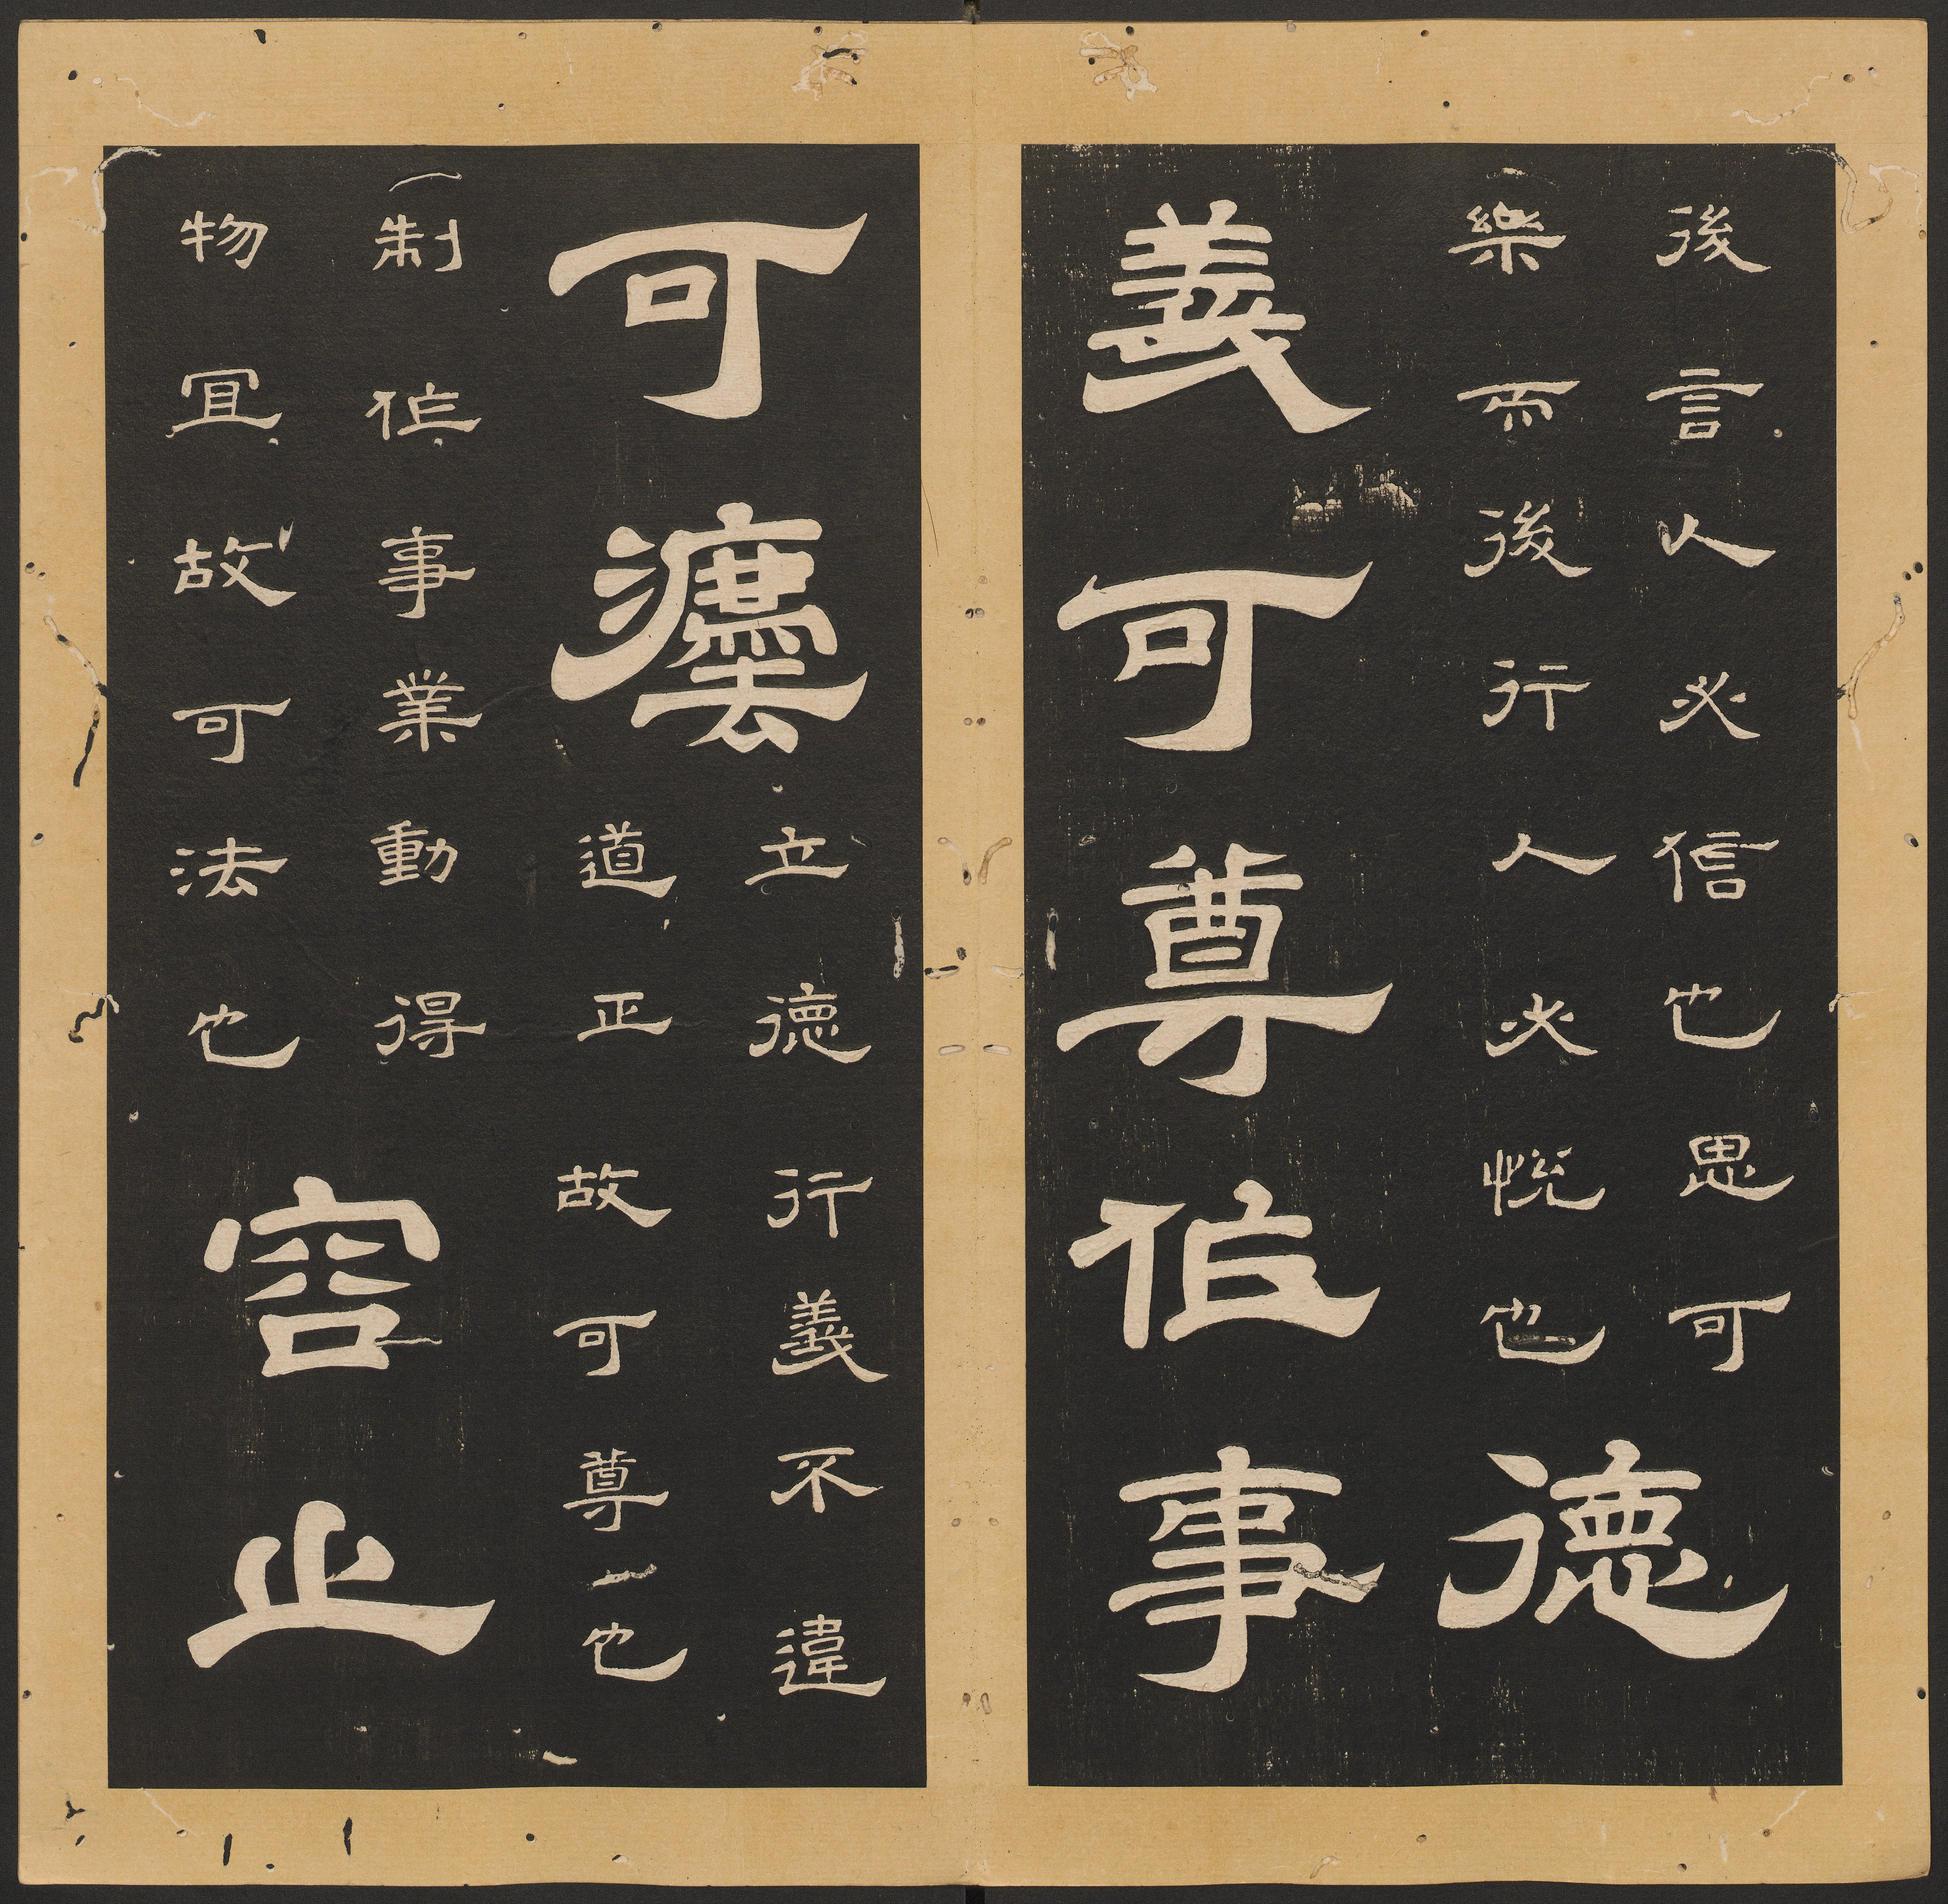 後言人必信也思可
樂而後行人必悅也
德
義可尊作事
可灋
立德行義不違
道正故可尊也
制作事業動得
物宜故可法也
容止